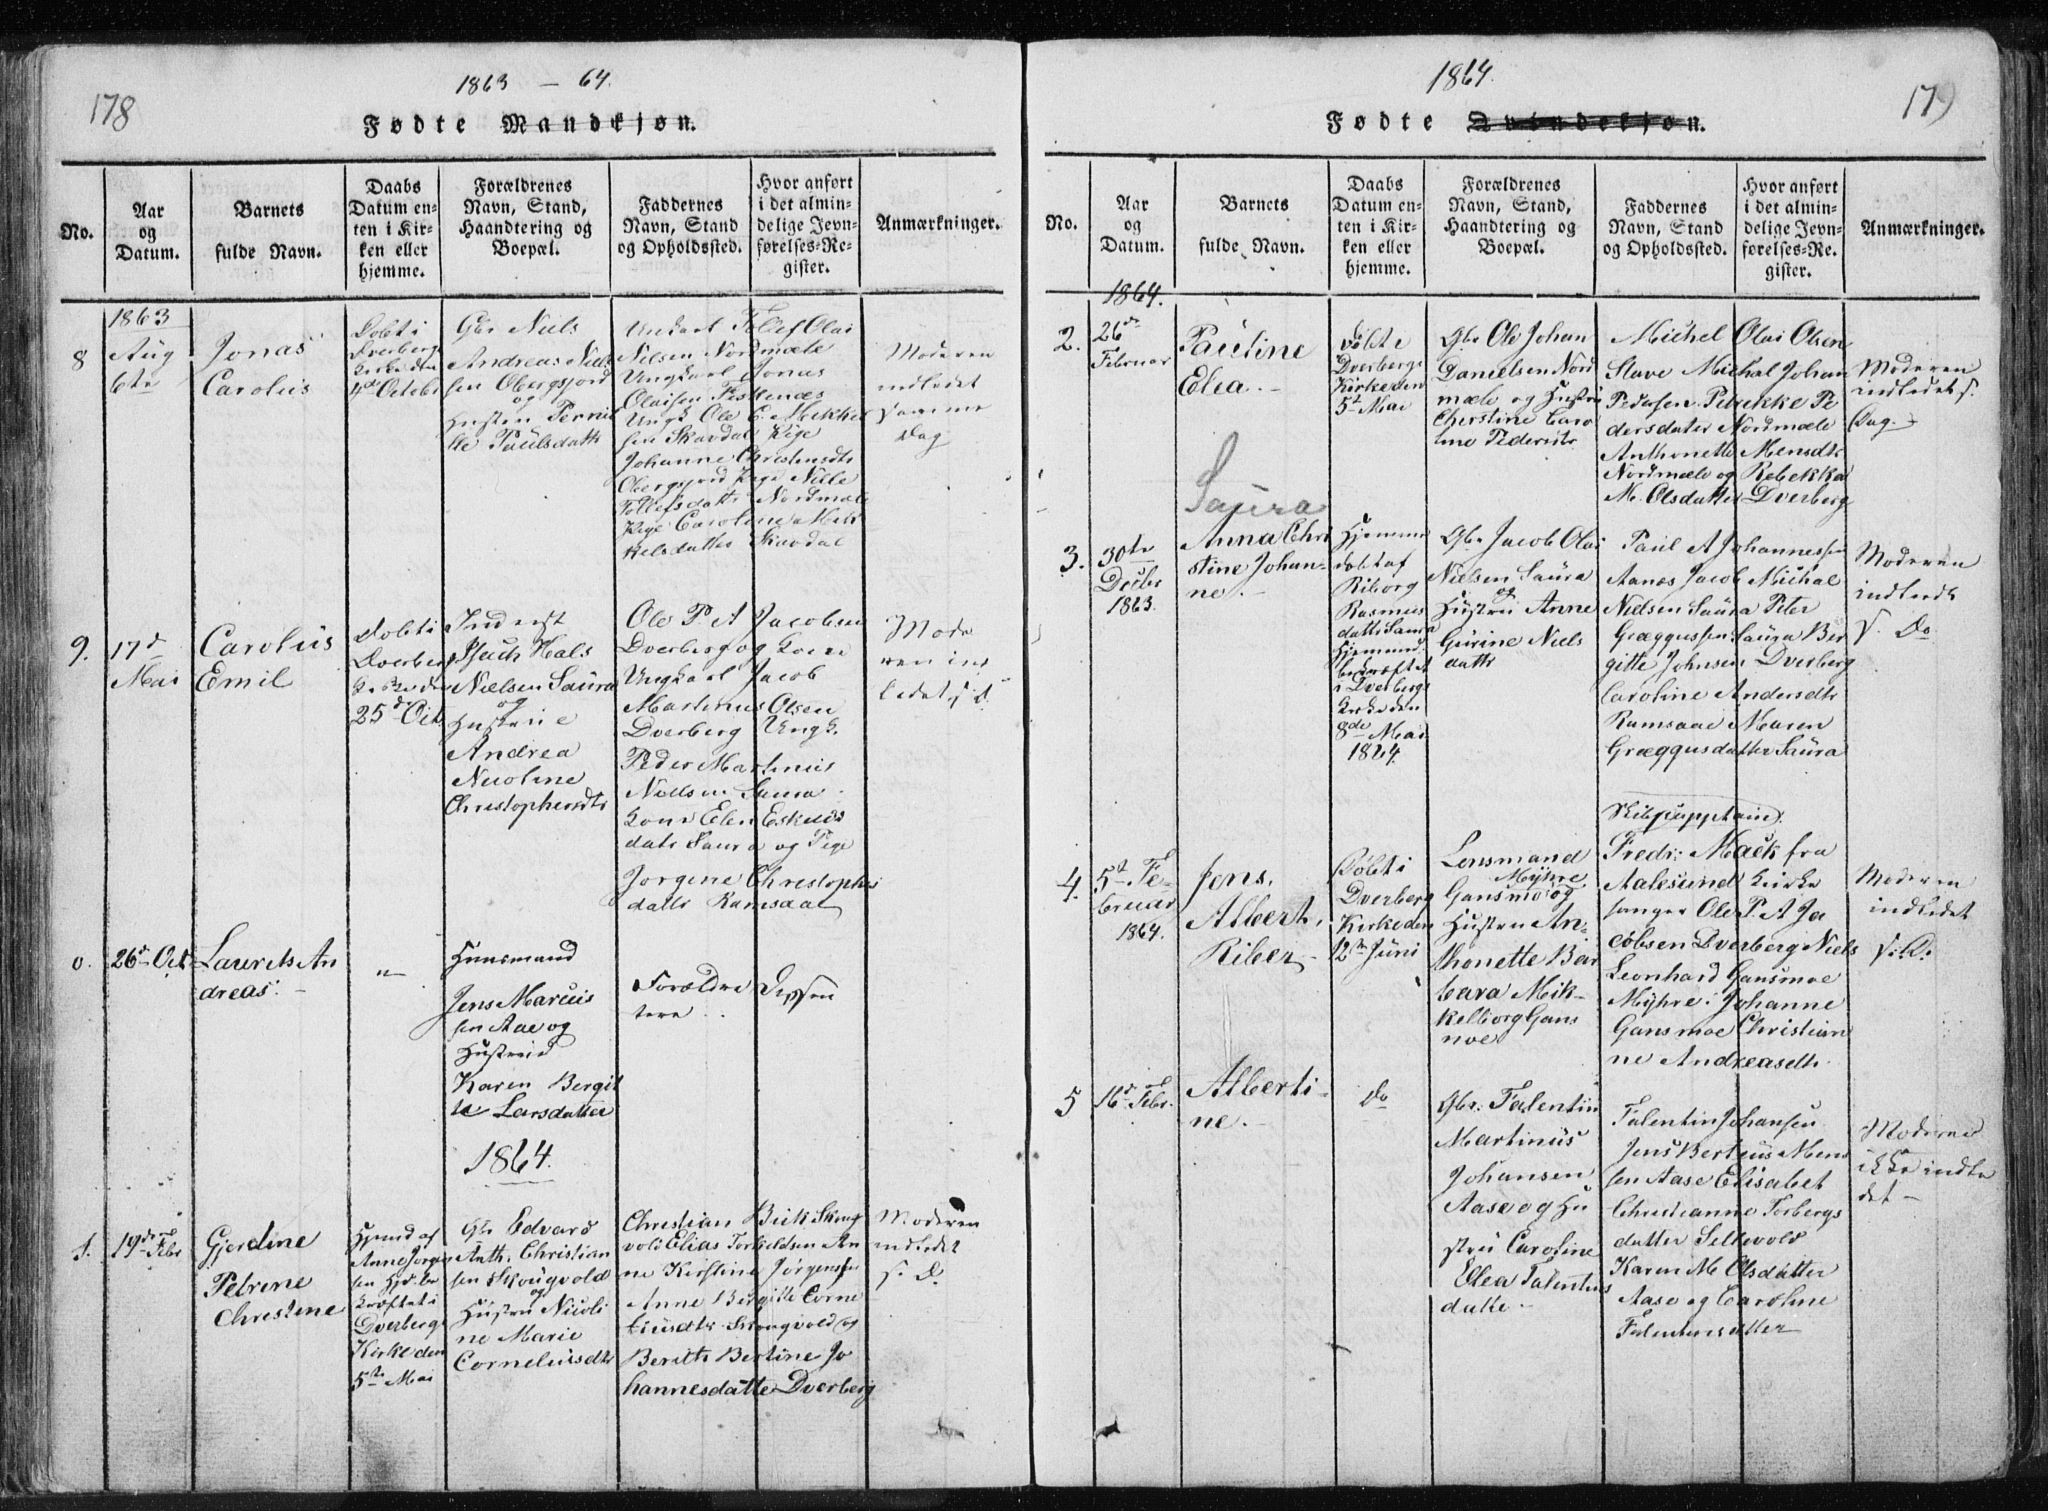 178
1863 - 64.
Fødte Mandkjøn.
No.
Aar
og
Datum.
Barnets
fulde Navn.
Daabs
Datum en-
ten i Kir-
ken eller
hjemme.
Forældrenes
Navn, Stand,
Haandtering og
Boepæl.
Faddernes
Navn, Stand
og Opholdssted.
Hvor anført
i det almin-
delige Jevn-
førelses-Re-
gister.
Anmærkninger.
1863
8
Aug
6te
Jonas
Carolus
Døbt i
Dverbergs
Kirke den
4de Octobr
Gbr Niels
Andreas Niel
sen Obergsjord
og
Hustru Pernil
le Paulsdattr
Unkarl Tollef Olai
Nilsen Nordmæle
Ungkarl Jonas
Olaisen Fiskenæs
Ungk Ole E. Mikkel
sen Skavdal Pige
Johanne Christensdtr
Obergsjord Pige Nille
Tollefsdattr Nordmæle
Pige Caroline Mik
kelsdatter Skavdal
Moderen
indledet
samme
Dag
9.
17d
Mai
Carolus
Emil
Døbt i
Dverbergs
Kirke den
25de Oct
Inderst
Isach Hals
Nielsen Saura
og
Hustrue
Andrea
Nicoline
Christophersdtr
Ole P A Jacobsen
Dverberg og Kone
Ungkarl Jacob
Martinus Olsen
Dverberg Ungk.
Peder Martinus
Nielsen Saura
Kone Elen Eskilds
datr Saura og Pige
Jorgine Christophers
dattr Ramsaae
Mode
ren ind
ledet s. d.
0.
26d Oct
Laurits An
dreas.
"
Huusmand
Jens Marcus
sen Aae og
Hustrue
Karen Bergit
te Larsdatter
Forældre Dissen
tere
1864.
1.
19de Febr
Gjerdine
Petrine
Christine
Hjemd af
Anne Jorgen
sen Hjd. be
kræftet i
Dverbergs
Kirke den
5te Mai
Gbr Edvard
Anth. Christian
sen Skougvold
og
Hustru Nicoli
ne Marie
Corneliusdtr
Christian Bick Skoug
vold Elias Torkildsen An
ne Kirstine Jørgensen
Anne Birgitte Corne
liusdtr Skougvold og
Berith Bertine Jo
hannesdatte Dverberg
Moderen
indledet
s. D.
179
1864.
Fødte Qvindekjøn.
No.
Aar
og
Datum.
Barnets
fulde Navn.
Daabs
Datum en-
ten i Kir-
ken eller
hjemme.
Forældrenes
Navn, Stand,
Haandtering og
Boepæl.
Faddernes
Navn, Stand
og Opholdssted.
Hvor anført
i det almin-
delige Jevn-
førelses-Re-
gister.
Anmærkninger.
1864.
2.
26de
Februar
Pauline
Elea.
døbt i
Dverbergs
Kirke den
5t Mai
Gbr Ole Johan
Danielsen Nord
mæle og Hustru
Cherstine Caro
line Pedersdtr
Michel Olai Olsen
Stave Michal Johan
Pedersen Petrikke Pe
dersdater Nordmæle
Anthonette Mensdtr
Nordmæle og Rebekka
M. Olsdatter Dverberg
Moderen
indledet s.
Dag.
Saura
3.
30te
Decbr
1863.
Anna Chri
stine Johan-
ne.
Hjemme
døbt af
Riborg
Rasmus
dattr Saura
Hjemmed
bekræftet
i Dverbergs
Kirke den
8de Mai
1864
Gbr Jacob Olai
Nielsen Saura
og
Hustru Anne
Gurine Niels
dattr
Paul A Johannessen
Aanæs Jacob Michal
Nielsen Saura Peter
Græggussen Saura Bir
gitte Johnsen Dverberg
Caroline Andersdtr
Ramsaae Maren
Græggusdatter Saura
Moderen
indledt
s. Do
4.
5t Fe-
bruar
1864.
Jens.
Albert.
Riber
Døbt i
Dverberg
Kirke den
12te Juni
Lensmand
Myhre
Gansmo og
Hustru An-
thonette Bar
bara Mik-
kelborg Gans
moe
Skibscapptain
Fredr: Mack fra
Aalesund Kirke
sanger Ole P. A Ja
cobsen Dverberg Niels
Leonhard Gansmoe
Myhre. Johanne
Gansmoe Christian
ne Andreasdtr
Moderen
indledet
s. D.
5
16d Febr.
Alberti-
ne.
Do
Gbr: Falentin
Martinus
Johansen
Aase og Hu
stru Caroline
Elea Falentins
datte.
Falentin Johansen
Jens Berteus Mens
sen Aase Elisabet
Christianne Torbergs
datter Selkvold
Karen M Olsdatter
Aase og Caroline
Falentinsdatter
Moderen
ikke indle
det